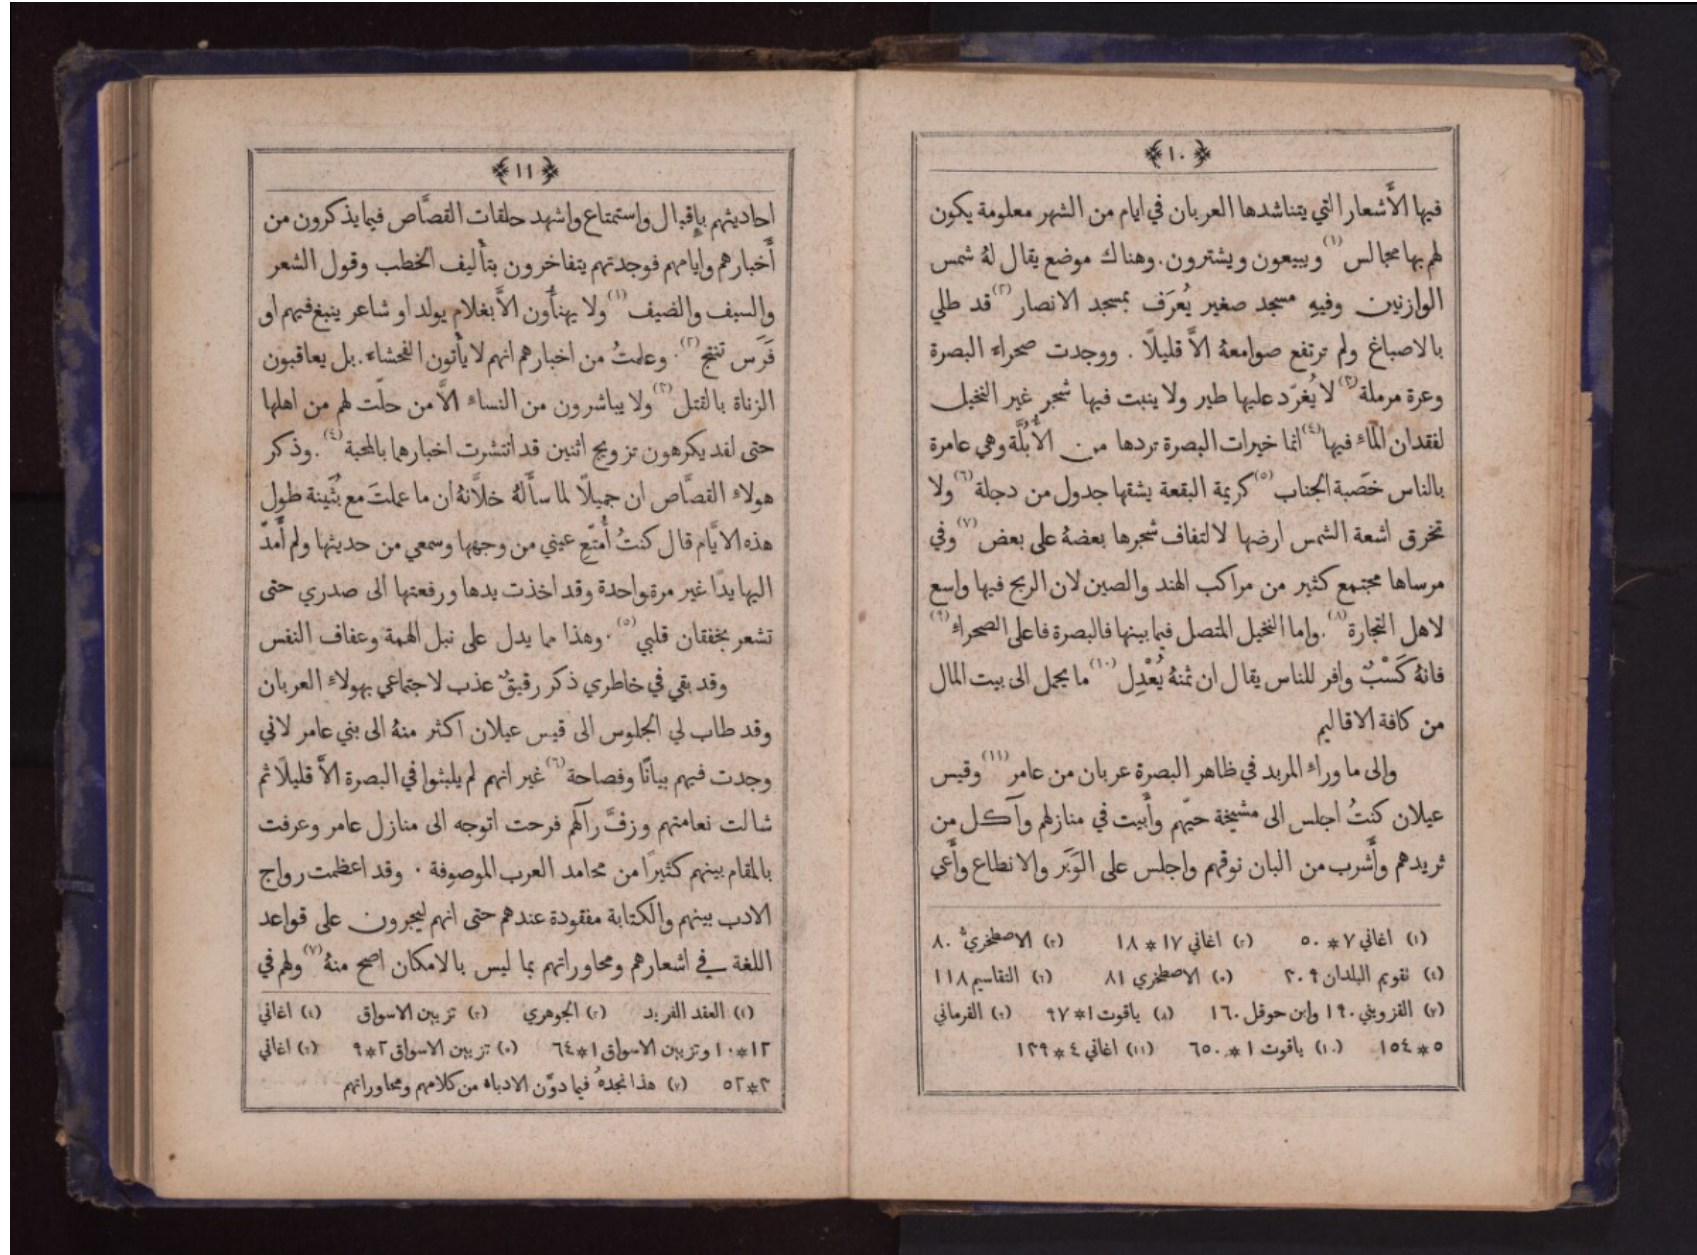 ﴿١٠﴾
فيها الأَشعار التي يتناشدها العربان في ايام من الشهر معلومة يكون
لهم بها مجالس (١) ويبيعون ويشترون. وهناك موضع يقال لهُ شمس
الوازنين وفيهِ مسجد صغير يُعرَف بمسجد الانصار (٢) قد طلي
بالاصباغ ولم ترتفع صوامعهُ الاَّ قليلاً . ووجدت صحراء البصرة
وعرة مرملة (٣) لا يُغرّد عليها طير ولا ينبت فيها شجر غير النخيل
لفقدان الماء فيها (٤) انما خيرات البصرة تردها من الأُبُلَّة وهي عامرة
بالناس خصَبة الجناب (٥) كريمة البقعة يشقها جدول من دجلة (٦) ولا
تخرق اشعة الشمس ارضها لالتفاف شجرها بعضهُ على بعض (٧) وفي
مرساها مجتمع كثير من مراكب الهند والصين لان الربح فيها واسع
لاهل التجارة (٨) . واما النخيل المتصل فيما بينها فالبصرة فاعلى الصحراء (٩)
فانهُ كَسْبٌ وافر للناس يقال ان ثمنهُ يُعْدِل (١٠) ما يحمل الى بيت المال
من كافة الاقاليم
والى ما وراء المربد في ظاهر البصرة عربان من عامر (١١) وقيس
عيلان كنتُ اجلس الى مشيخة حيّهم وأَبيت في منازلهم وآكل من
ثريدهم وأَشرب من البان نوقهم واجلس على الوَبَر والانطاع وأَعي
(١) اغاني ٧*٥٠ (٢) اغاني ١٧*١٨ (٣) الاصطخري ٨٠
(٤) تقويم البلدان ٣٠٩ (٥) الاصطخري ٨١ (٦) التقاسيم ١١٨
(٧) القزويني ١٩٠ وابن حوقل ١٦٠ (٨) ياقوت ١*٩٧ (٩) القرماني
٥*١٥٤ (١٠) ياقوت ١*٦٥٠ (١١) اغاني ٤*١٣٩
﴿١١﴾
احاديثهم بإِقبال واستمتاع واشهد حلقات القصَّاص فيما يذكرون من
أَخبارهم وايامهم فوجدتهم يتفاخرون بتأْليف الخطب وقول الشعر
والسيف والضيف (١) ولا يهنأُون الاَّ بغلام يولد او شاعر ينبغ فيهم او
فَرَس تنتج (٢) . وعلمتُ من اخبارهم انهم لا يأْتون الفحشاء. بل يعاقبون
الزناة بالقتل (٣) ولا يباشرون من النساء الاَّ من حلّت لهم من اهلها
حتى لقد يكرهون تزويج اثنين قد انتشرت اخبارهما بالمحبة (٤) . وذكر
هولاء القصَّاص ان جميلاً لما سأَلهُ خلاَّنهُ ان ما عملتَ مع بُثَينة طول
هذه الايَّام قال كنتُ أُمتّع عيني من وجهها وسمعي من حديثها ولم أَمدّ
اليها يدًا غير مرة واحدة وقد اخذت يدها ورفعتها الى صدري حتى
تشعر بخفقان قلبي (٥) . وهذا مما يدل على نبل الهمة وعفاف النفس
وقد بقي في خاطري ذكر رقيقٌ عذب لاجتماعي بهولاء العربان
وقد طاب لي الجلوس الى قيس عيلان اكثر منهُ الى بني عامر لاني
وجدت فيهم بيانًا وفصاحة (٦) غير انهم لم يلبثوا في البصرة الاَّ قليلاً ثم
شالت نعامتهم وزفَّ رآلهم فرحت اتوجه الى منازل عامر وعرفت
بالمقام بينهم كثيرًا من محامد العرب الموصوفة . وقد اعظمت رواج
الادب بينهم والكتابة مفقودة عندهم حتى انهم ليجرون على قواعد
اللغة في اشعارهم ومحاوراتهم بما ليس بالامكان اصح منهُ (٧) ولهم في
(١) العقد الفريد (٢) الجوهري (٣) تزيين الاسواق (٤) اغاني
١٠*١٢ وتزيين الاسواق ١*٦٤ (٥) تزيين الاسواق ٢*٩ (٦) اغاني
٢*٥٢ (٧) هذا نجدهُ فيما دوّن الادباء من كلامهم ومحاوراتهم